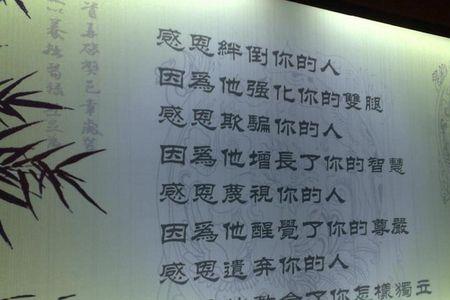 感恩絆倒你的人
因爲他强化你的雙腿
感恩欺騙你的人
因爲他增長了你的智慧
感恩蔑視你的人
因爲他醒覺了你的尊嚴
感恩遺弃你的人
了你怎樣獨立